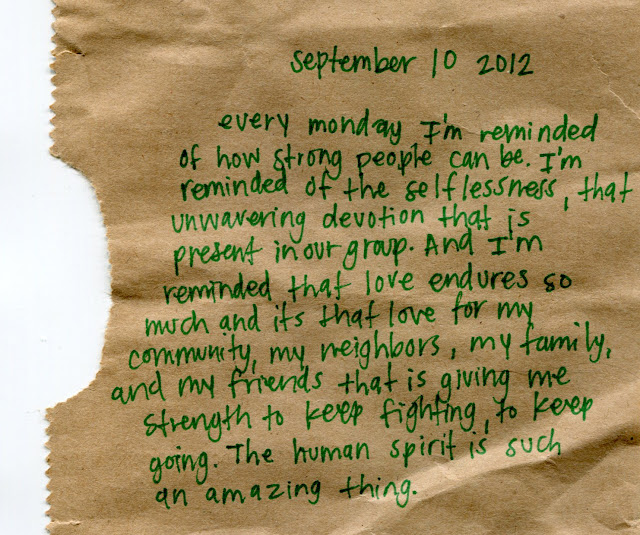 september 10 2012
every monday I'm reminded
of how strong people can be. I'm
reminded of the selflessness, that
unwavering devotion that is
present in our group. And I'm
reminded that love endures so
much and its that love for my
community, my neighbors, my family,
and my friends that is giving me
strength to keep fighting, to keep
going. The human spirit is such
an amazing thing.